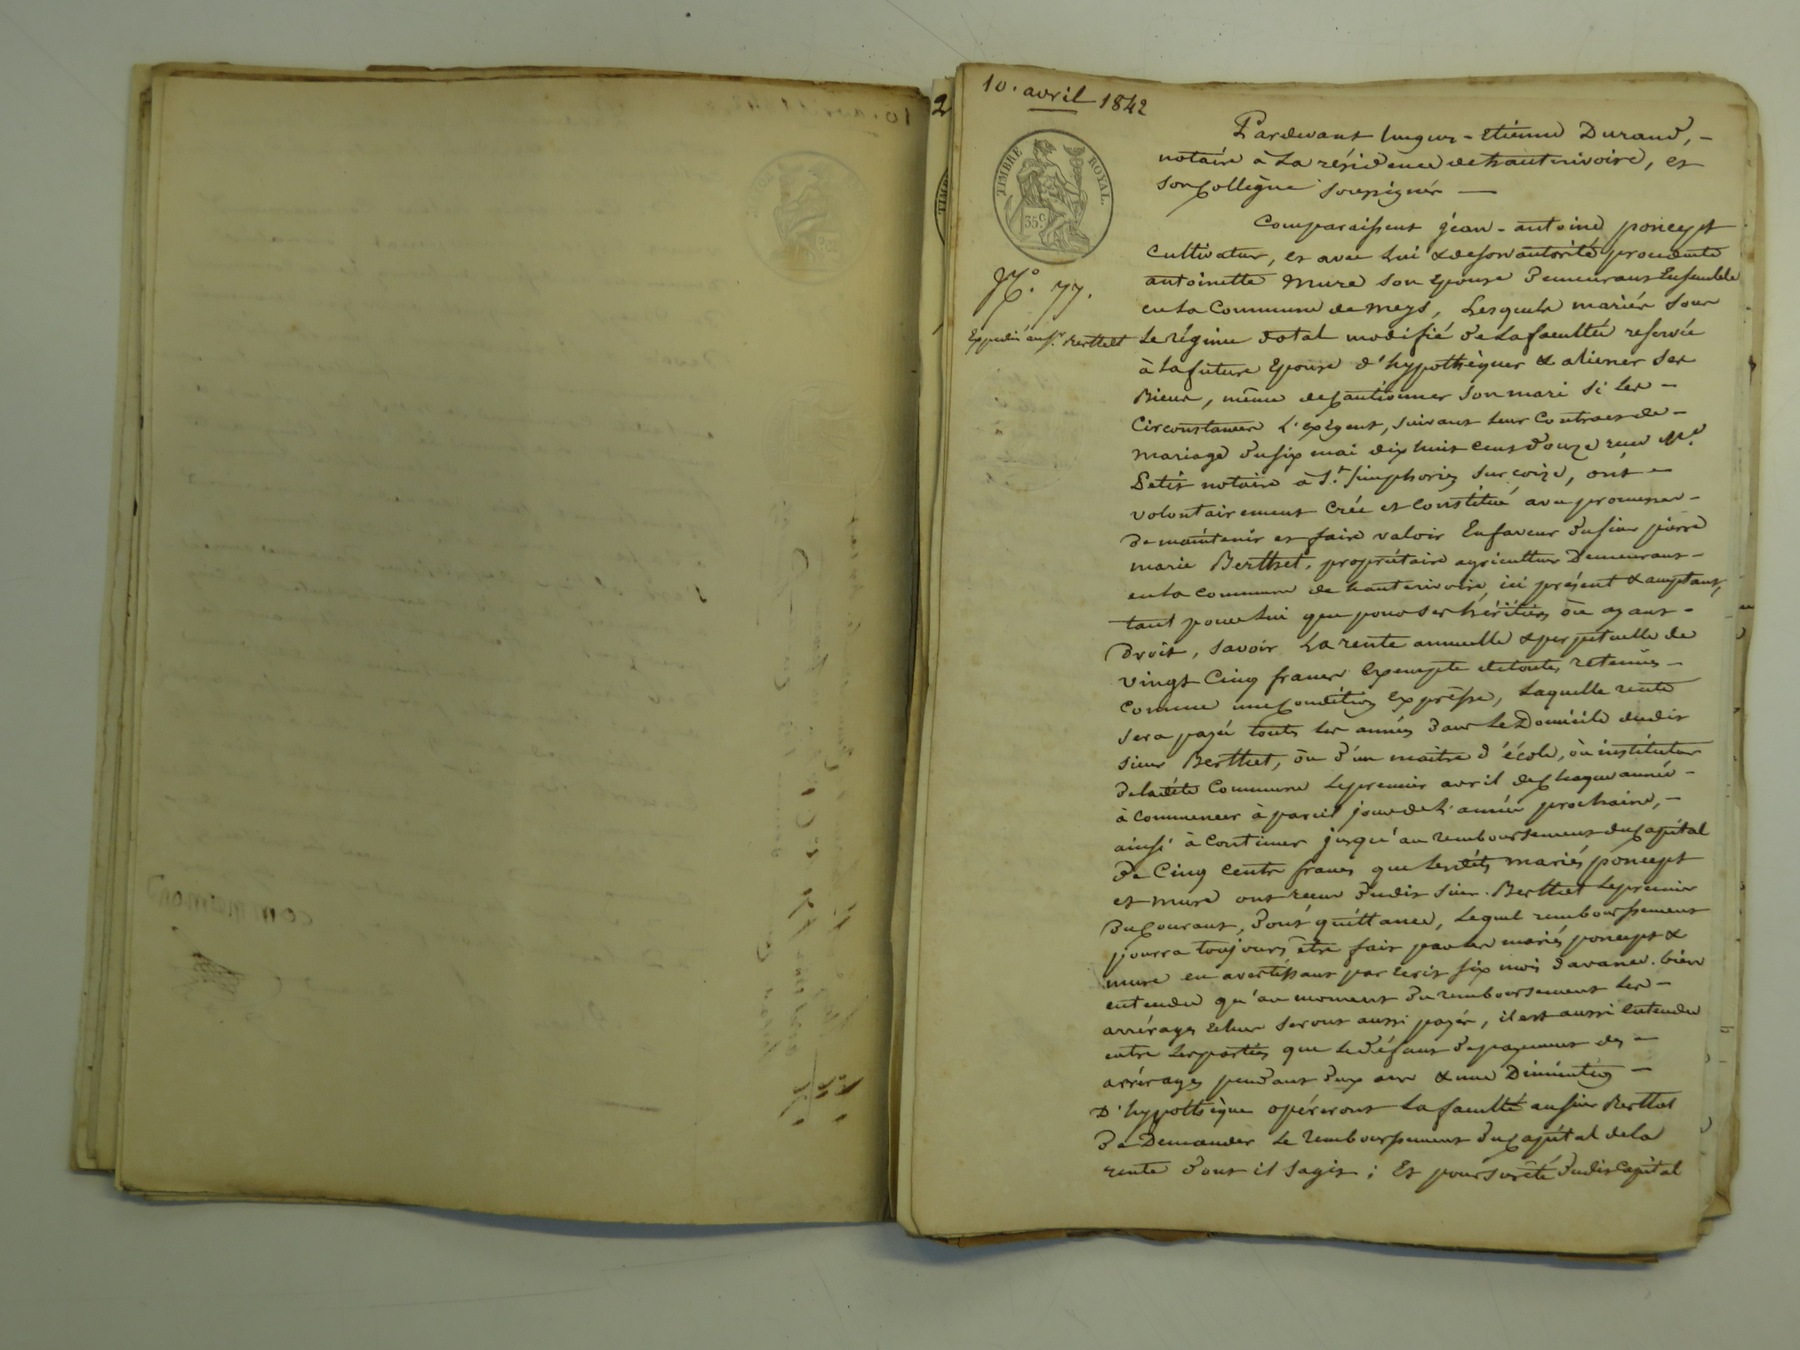 10. avril 1842
TIMBRE ROYAL.
35 c.
N.° 77.
Expédié au s.r Berthet
Pardevant hugues-étienne Durand, -
notaire à La résidence de hauterivoire, et
son Collègue soussignés —
Comparaissent jean-antoine poncept
Cultivateur, et avec Lui & de son autorité procédante
antoinette Mure son épouse Demeurants Ensemble
en La Commune de meys, Lesquels mariés sous
Le régime dotal modifié de La faculté reservée
à La future Epouse d'hypothéquer & aliener ses
Biens, même de Cautionner Son mari Si Les -
Circonstances L'exigent, Suivant Leur Contract de -
mariage du six mai dix huit cent douze reçu M.e
Petit notaire à S.t Simphorien sur coize, ont -
volontairement Créé et Constitué avec promesses -
de maintenir et faire valoir En faveur du sieur pierre
marie Berthet, propriétaire agriculteur Demeurant -
en La Commune de hauterivoire, ici présent & acceptant,
tant pour Lui que pour ses héritiers ou ayant -
Droit, Savoir La rente annuelle & perpétuelle de
vingt Cinq francs Exempte de toutes retenues -
Comme une Condition Expresse, Laquelle rente
sera payée toutes les années dans Le Domicile dudit
sieur Berthet, ou d'un maitre d'école, ou instituteur
de ladite Commune Le premier avril de Chaque année -
à Commencer à pareil jour de L'année prochaine, -
ainsi à Continuer jusqu'au remboursement du Capital
de Cinq Cents francs que lesdits mariés poncept
et mure ont reçu dudit Sieur Berthet Le premier
du Courant, dont quittance, Lequel remboursement
pourra toujours être fait par les mariés poncept &
mure en avertissant par Ecrit six mois d'avance. bien
entendu qu'au moment du remboursement Les -
arrérages Echus Seront aussi payés, il est aussi Entendu
entre Les parties que Le défaut de payement des -
arrérages pendant deux ans & une Diminution —
D'hypothèque opéreront La faculté au sieur Berthet
de Demander Le remboursement du Capital de la
rente dont il s'agit ; Et pour Sureté dudit Capital